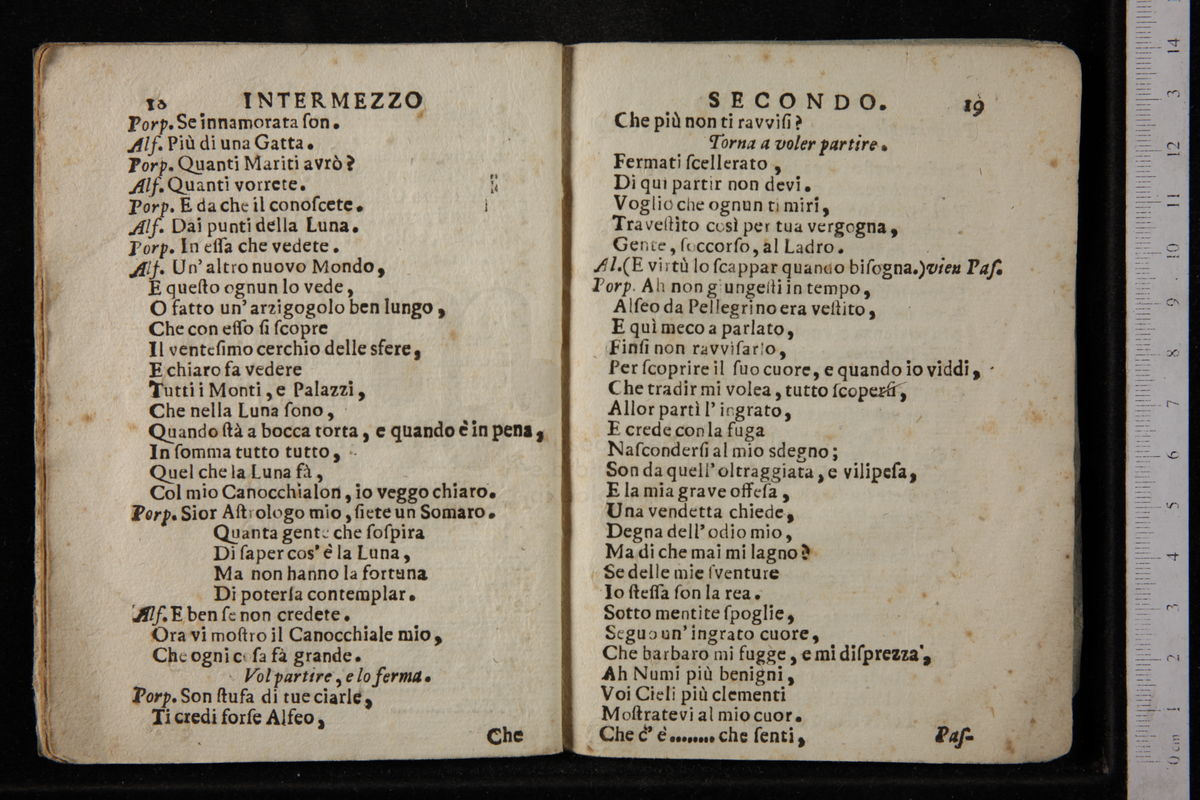 18 INTERMEZZO
Porp. Se innamorata ſon.
Alf. Più di una Gatta.
Porp. Quanti Mariti avrò?
Alf. Quanti vorrete.
Porp. E da che il conoſcete.
Alf. Dai punti della Luna.
Porp. In eſſa che vedete.
Alf. Un' altro nuovo Mondo,
E queſto ognun lo vede,
O fatto un' arzigogolo ben lungo,
Che con eſſo ſi ſcopre
Il venteſimo cerchio delle sfere,
E chiaro fa vedere
Tutti i Monti, e Palazzi,
Che nella Luna ſono,
Quando ſtà a bocca torta, e quando è in pena,
In ſomma tutto tutto,
Quel che la Luna fà,
Col mio Canocchialon, io veggo chiaro.
Porp. Sior Aſtrologo mio, ſiete un Somaro.
Quanta gente che ſoſpira
Di ſaper cos' è la Luna,
Ma non hanno la fortuna
Di poterſa contemplar.
Alf. E ben ſe non credete.
Ora vi moſtro il Canocchiale mio,
Che ogni coſa fà grande.
Vol partire, e lo ferma.
Porp. Son ſtufa di tue ciarle,
Ti credi forſe Alfeo,
Che
SECONDO. 19
Che più non ti ravviſi?
Torna a voler partire.
Fermati ſcellerato,
Di qui partir non devi.
Voglio che ognun ti miri,
Traveſtito così per tua vergogna,
Gente, ſoccorſo, al Ladro.
Al. (E virtù lo ſcappar quando biſogna.) vien Paſ.
Porp. Ah non giungeſti in tempo,
Alfeo da Pellegrino era veſtito,
E quì meco a parlato,
Finſi non ravviſarlo,
Per ſcoprire il ſuo cuore, e quando io viddi,
Che tradir mi volea, tutto ſcoperſi,
Allor partì l' ingrato,
E crede con la fuga
Naſconderſi al mio sdegno;
Son da quell' oltraggiata, e vilipeſa,
E la mia grave offeſa,
Una vendetta chiede,
Degna dell' odio mio,
Ma di che mai mi lagno?
Se delle mie ſventure
Io ſteſſa ſon la rea.
Sotto mentite ſpoglie,
Seguo un' ingrato cuore,
Che barbaro mi fugge, e mi diſprezza,
Ah Numi più benigni,
Voi Cieli più clementi
Moſtratevi al mio cuor.
Che c' è........ che ſenti,
Paſ-